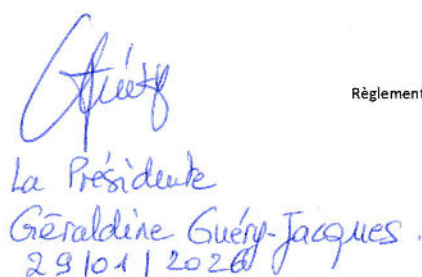 Guéry
Règlement
La Présidente
Géraldine Guéry-Jacques.
29/01/2026